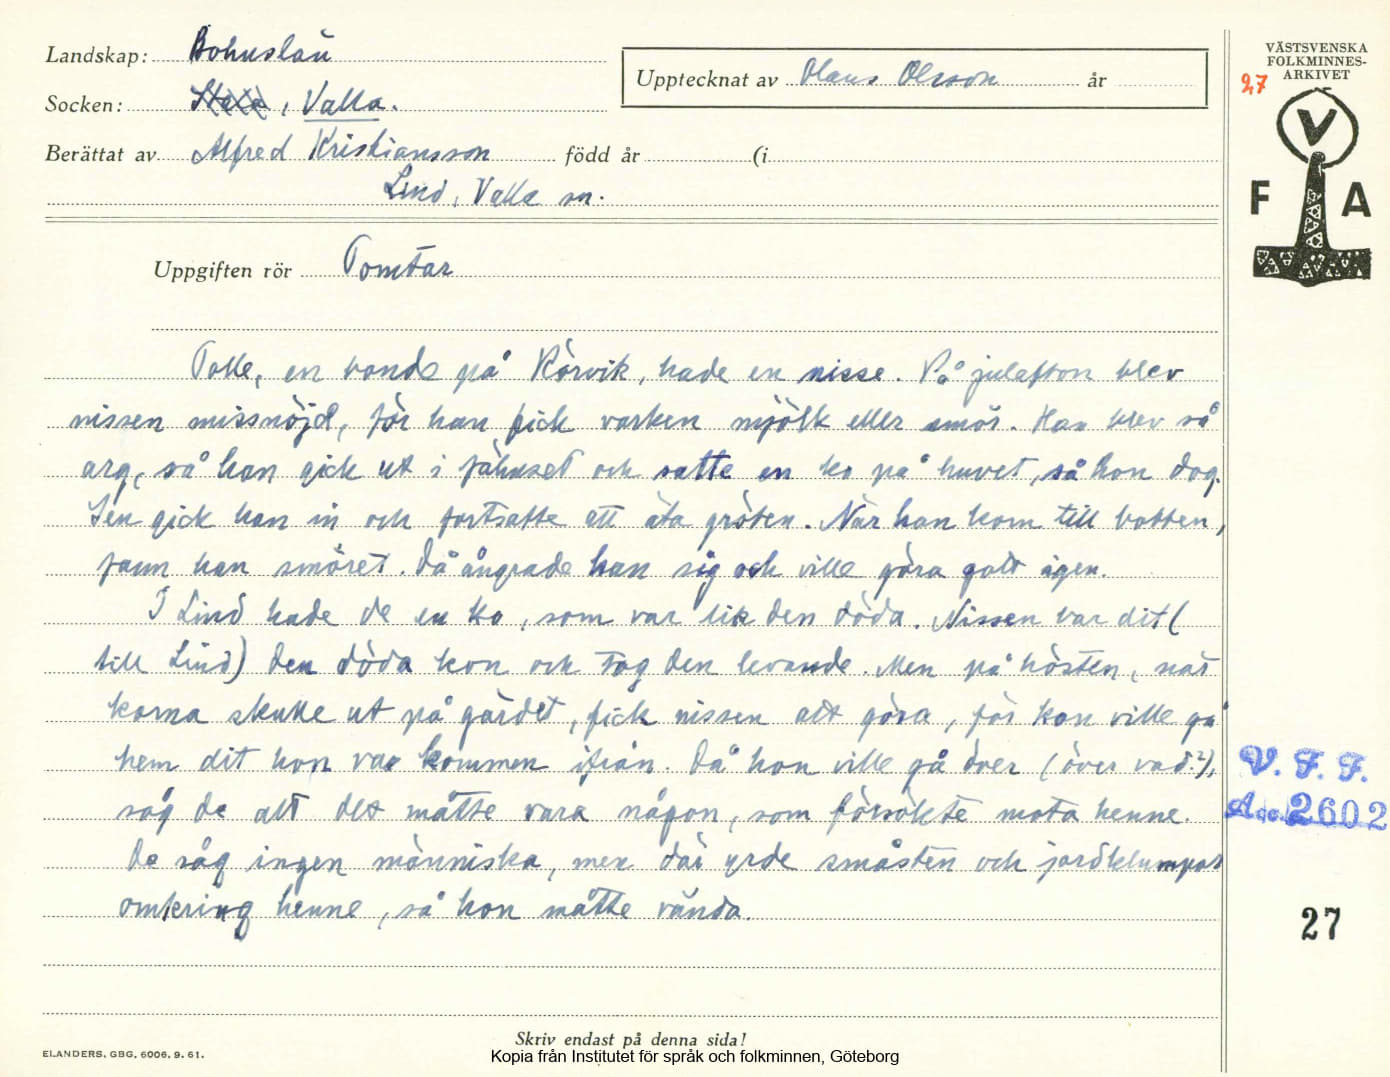 Landskap: Bohuslän
Upptecknat av Olaus Olsson år
Socken: , Valla.
Berättat av Alfred Kristiansson född år (i
Lind, Valla sn.
VÄSTSVENSKA
FOLKMINNES-
ARKIVET
27
V
F A
Uppgiften rör Tomtar
Tolle, en bonde på Rörvik, hade en nisse. På julafton blev
nissen missnöjd, för han fick varken mjölk eller smör. Han blev så
arg, så han gick ut i fähuset och satte en ko på huvet, så hon dog.
Sen gick han in och fortsatte att äta gröten. När han kom till botten,
fann han smöret. Då ångrade han sig och ville göra gott igen.
I Lind hade de en ko, som var lik den döda. Nissen bar dit (
till Lind) den döda kon och tog den levande. Men på hösten, när
korna skulle ut på gärdet, fick nissen att göra, för kon ville gå
hem dit hon var kommen ifrån. Då hon ville gå över (över vad?),
såg de att det måtte vara någon, som försökte mota henne.
De såg ingen människa, men där yrde småsten och jordklumpar
omkring henne, så hon måtte vända.
V. F. F.
Acc. 2602
27
Skriv endast på denna sida!
ELANDERS, GBG, 6006. 9. 61.
Kopia från Institutet för språk och folkminnen, Göteborg